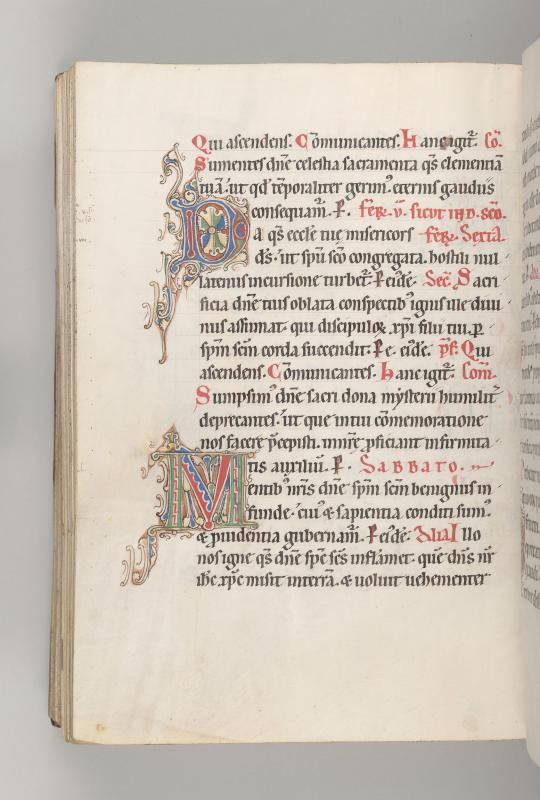 Qui ascendens. Cōmunicantes. Hanc igit᷑. Cō.
Sumentes dn̄e celestia sacramenta q̄s clementiā
tuā. ut qd̓ tēporaliter gerim᷒. eternis gaudiis
consequam̄. P. fer̄. v. sicut in d. scō.
Da q̄s eccl̄e tuę misericors fer̄. Sexta.
d̄s. ut sp̄u scō congregata. hostili nul
latenus incursione turbet᷑. P. eiusdē. Sec̄. Sacri
ficia dn̄e tuis oblata conspectib᷒ ignis ille diui
nus assumat. qui discipuloꝝ xp̄i filii tui. p
sp̄m sc̄m corda succendit. P. e. eiusdē. p̄f. Qui
ascendens. Cōmunicantes. Hanc igit᷑. Com̄.
Sumpsim᷒ dn̄e sacri dona mysterii humilit᷑
deprecantes. ut que in tui cōmemoratione
nos facere p̄cepisti. in nr̄e ꝓficiant infirmita
tis auxiliū. P. Sabbato.
Mentib᷒ nr̄is dn̄e sp̄m sc̄m benignus in
funde. cui᷒ & sapientia conditi sum᷒.
& ꝓuidentia gubernam̄. P. eiusdē. Alia Illo
nos igne q̄s dn̄e sp̄c sc̄s inflāmet. que dn̄s nr̄
ih̄c xp̄c misit in terrā. & uoluit uehementer